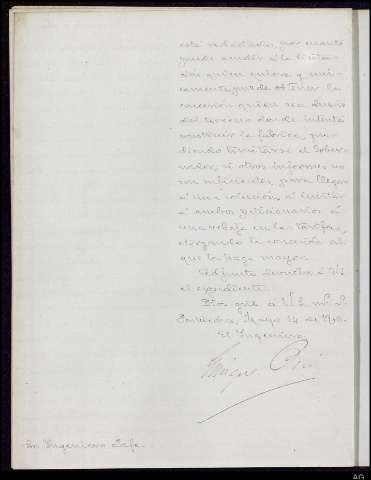 está redactado, por cuanto
puede acudir á la licita-
ción quien quiera y uni-
camente puede obtener la
concesión quien sea dueño
del terreno donde intenta
construir la fabrica, pu-
diendo limitarse el Gober-
nador, si otros informes no
son suficientes, para llegar
á una solución, á invitar
á ambos peticionarios á
una rebaja en las tarifas,
otorgando la concesión al
que la haga mayor.
Adjunto devuelvo á V.S.
el expediente.
Dios gue á V.S. ms. as.
Mayo 24 de
El Ingeniero,
Enrique
Sr. Ingeniero Jefe.
AG